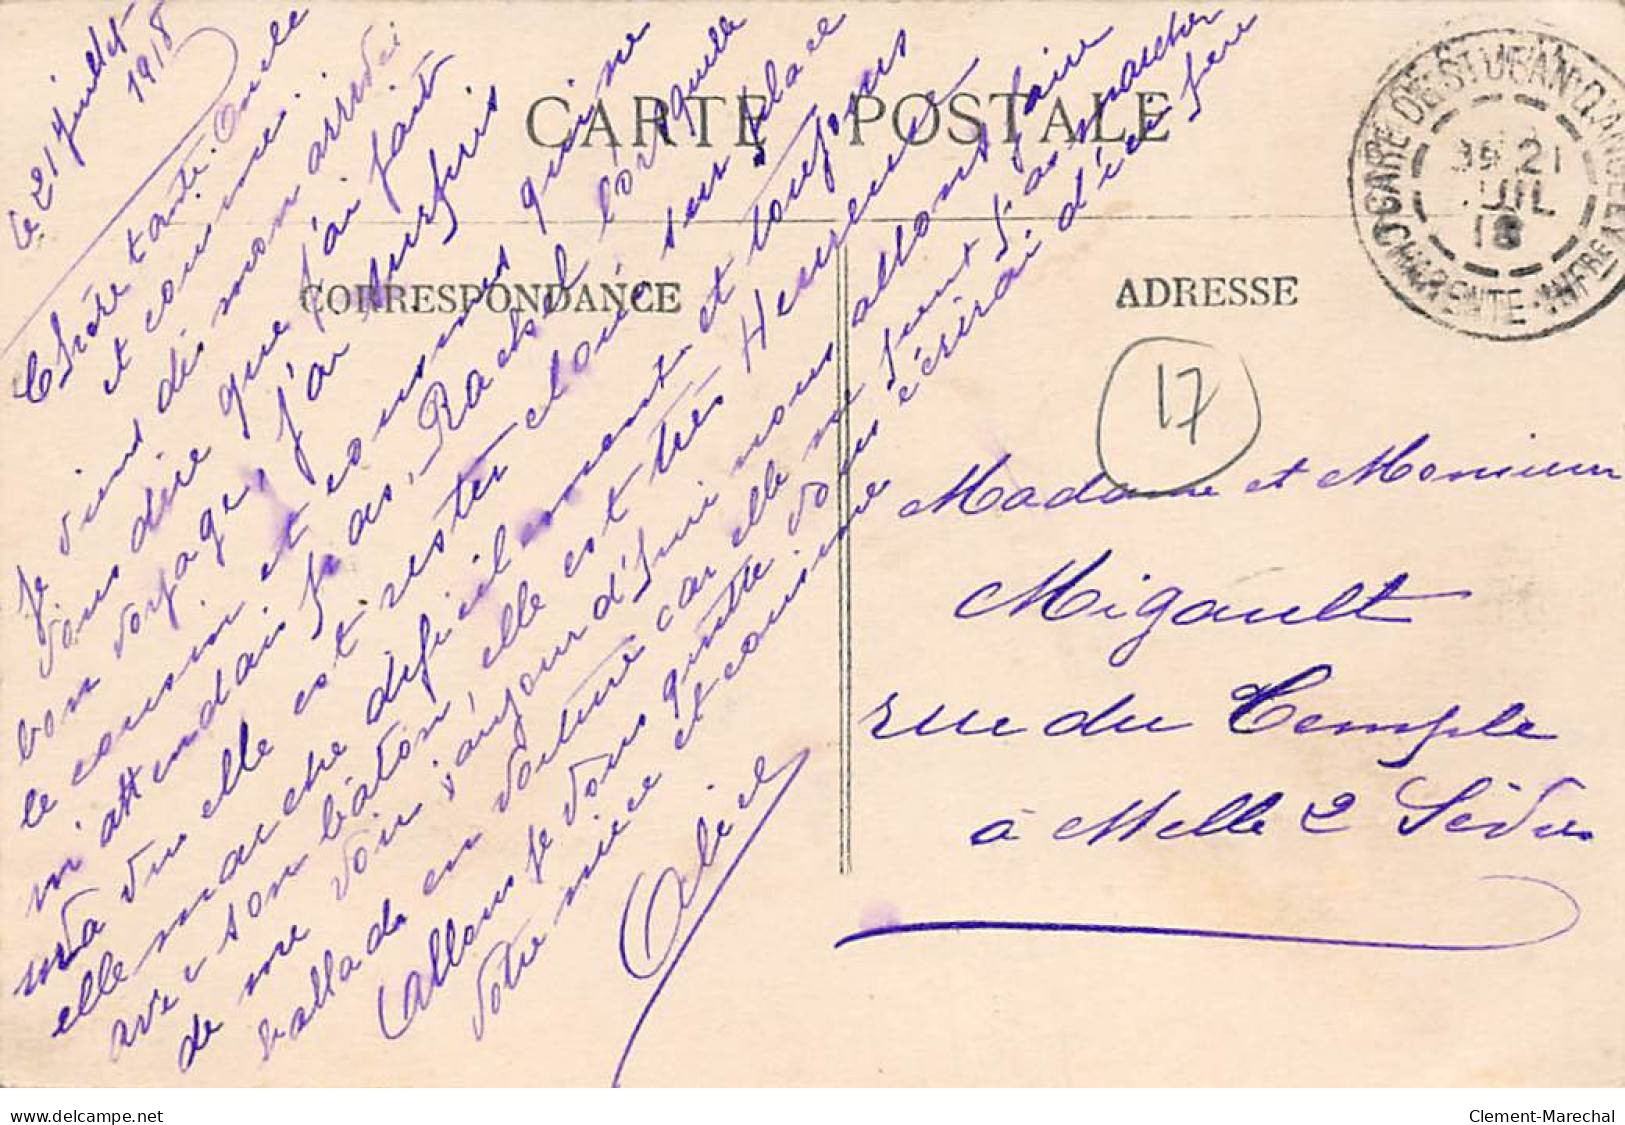 CARTE POSTALE
CORRESPONDANCE
ADRESSE
GARE DE ST JEAN D'ANGELY
21
JUIL
18
CHARENTE-INFRE
17
le 21 Juillet
1918
Chère tante. Oncle
et cousine.
Je viens dès mon arrivée
vous dire que j'ai fait
bon voyage, j'ai surpris
le cousin et cousine qui ne
m'attendais pas, Rachel lorsquelle
m'a vu elle est rester cloué sur place
elle marche dificilement et toujours
avec son bâton, elle est très Heureuse
de me voir, aujourd'hui nous allons faire
ballade en voiture car elle ne peut pas marcher
Allons je vous quitte vous écrirai d'ici peu
votre nièce et cousine
Alice
Madame et Monsieur
Migault
rue du Temple
à Melle 2 Sèvres
Clement-Marechal
www.delcampe.net